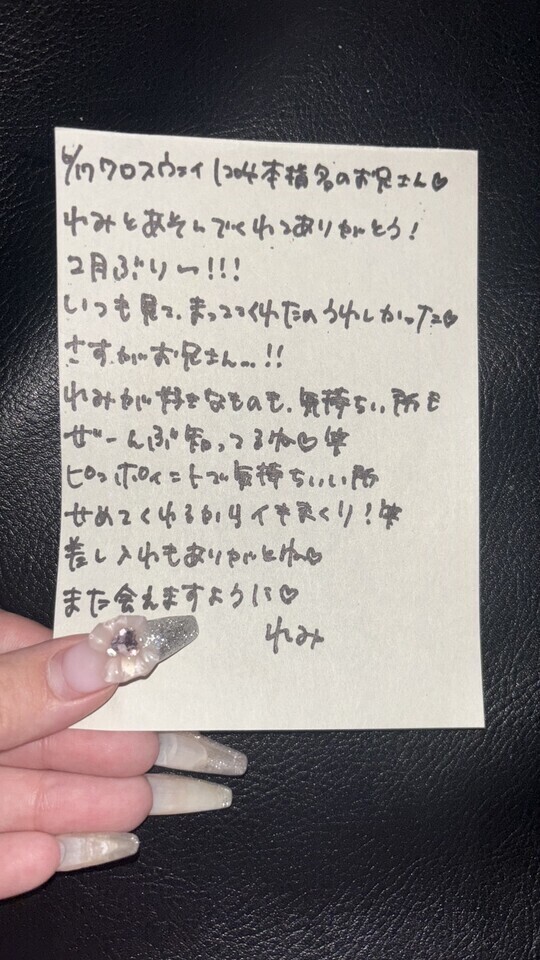 6/17 クロスウェイ 1204 本指名のお兄さん♡
れみとあそんでくれてありがとう!
2月ぶりー!!!
いつも見て、まっててくれたのうれしかった♡
さすがお兄さん...!!
れみが好きなものも、気持ちい所も
ぜーんぶ知ってるね♡
ピンポイントで気持ちいい所
せめてくれるからイキまくり!
差し入れもありがとね♡
また会えますように♡
れみ